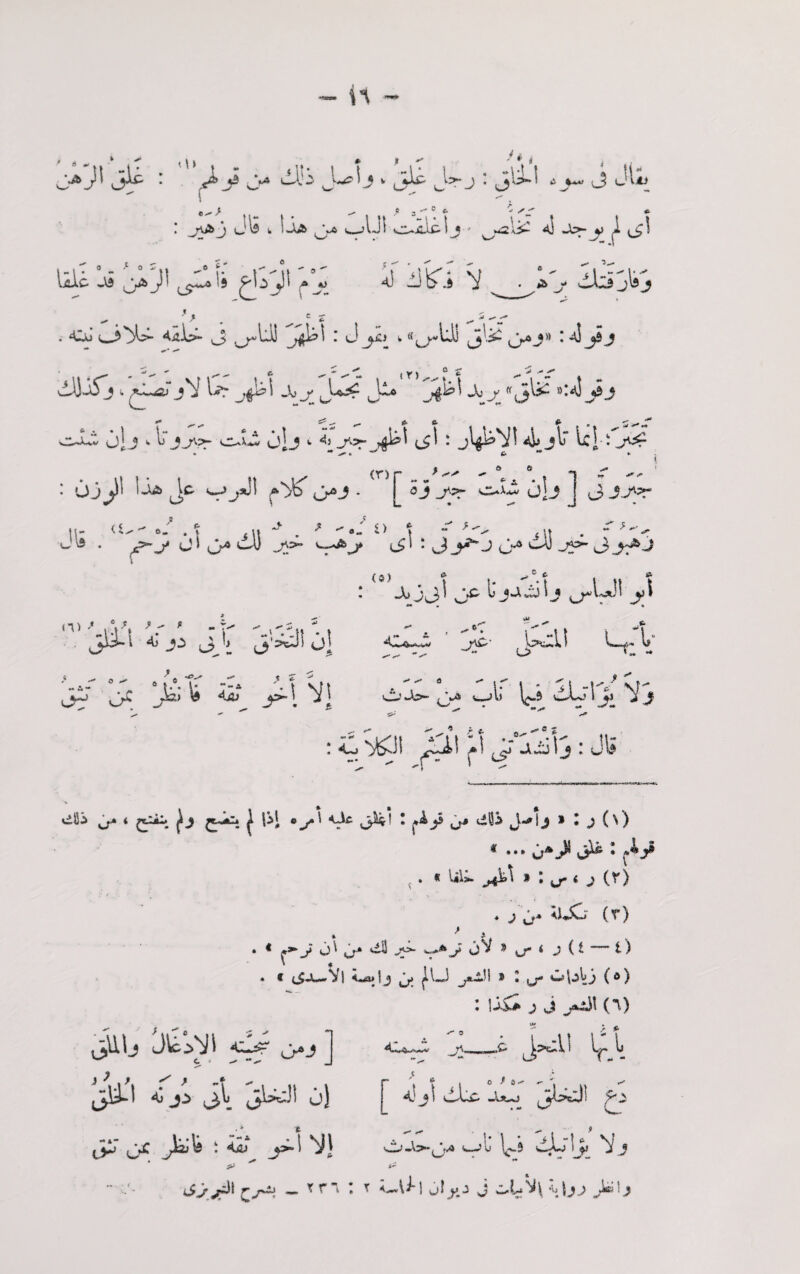 – ١٩ –
يقال في سوء الخلق : رجل غلق ، وأصل ذلك من قولهم (١) : غلق الرهن
أي لم يوجد له تخلص . واغتلقت الباب من هذا ، قال زهير :
وفارقتك برهن لا فكاك له يوم الوداع فأمسى الرهن قد غلقا
وقوله : «ومن تخلق للناس» ، يقول : أظهر للناس في خلقه خلاف نيته .
وقوله : «تخلق» يريد أظهر (٢) مثل تجمل يريد أظهر جمالا وتصنع ، وكذلك
تجبر : إنما تأويله الإظهار : أي أظهر جبرية ، وإن شئت جبروتا ، وإن شئت
جبروتى [ وإن شئت جبروة ] (٣) . ومن كلام العرب على هذا الوزن :
رهبوتى خير لك من رحموتى : أي (٤) ترهب خير لك من أن ترحم (٤) . قال
أبو العباس وأنشدونا عن أبي زيد (٥) :
يا أيها المتحلي غير شيمته إن التخلق يأتي دونه الخلق (٦)
ولا يواتيك فيما ناب من حدث إلا أخو ثقة فانظر بمن تثق
قال : وأنشدتني أم الهيثم الكلابية :
(١) ر : « وأصل ذلك من قولهم : أغلق عليه أمره إذا لم يتضح ولم ينفتح ، من ذلك
قولهم : غلق الرهن ... »
(٢) ر ، س : « أظهر خلقا » .
(٣) تكملة من ر .
(٤ — ٤) ر ، س « لأن ترهب خير لك من أن ترحم » .
(٥) زيادات س : « الشعر لسالم بن وابصة الأسدي » .
(٦) الشعر في ر هكذا :
يا أيها المتحلي غير شيمته [ ومن سجيته الإكثار والملق
دع التخلق يبعد عنك أوله ] إن التخلق يأتي دونه الخلق
ولا يواتيك فيما ناب من حدث إلا أخو ثقة فانظر بمن تثق
وانظر رواية الأبيات في ديوان الحماسة ٢ : ٢٣٦ – بشرح التبريزي